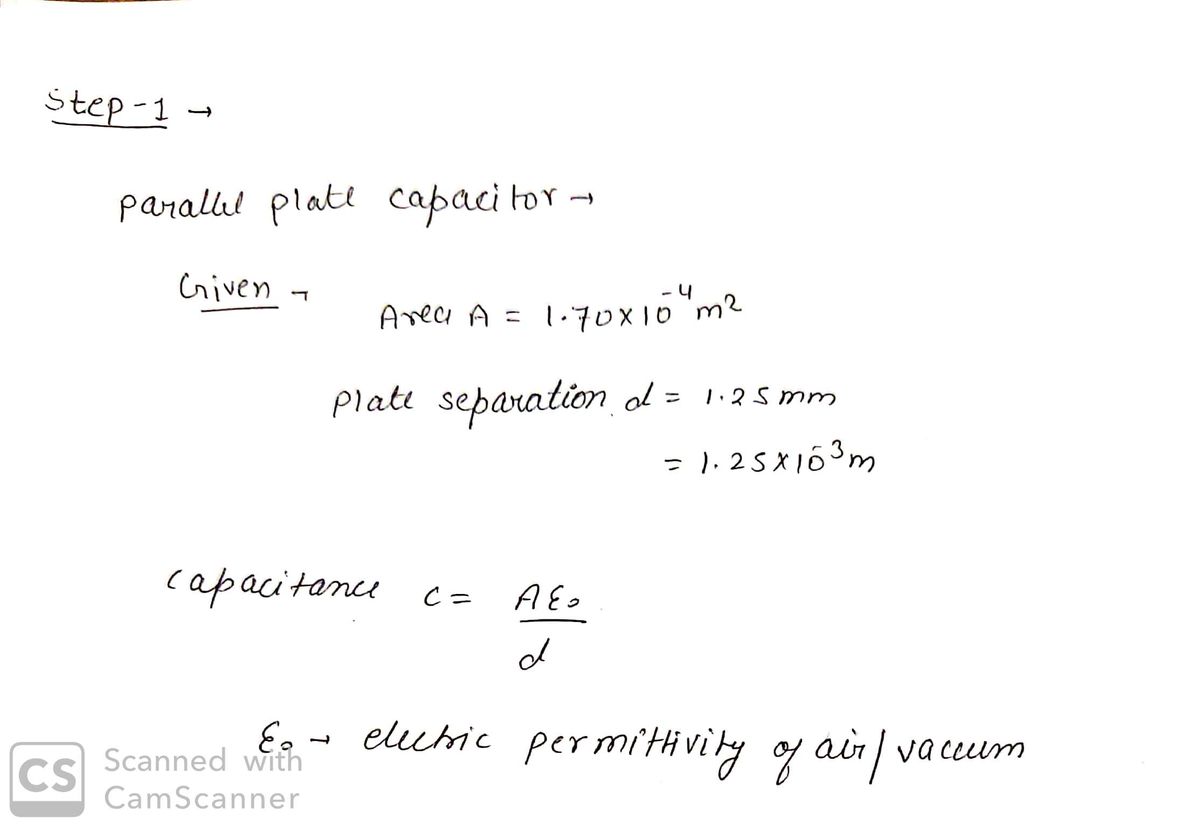 Step-1 →
parallel plate capacitor →
Given →
Area A = 1.70 × 10⁻⁴ m²
plate separation d = 1.25 mm
= 1.25 × 10⁻³ m
capacitance c = Aε₀
d
ε₀ → electric permittivity of air/vaccum
CS Scanned with
CamScanner